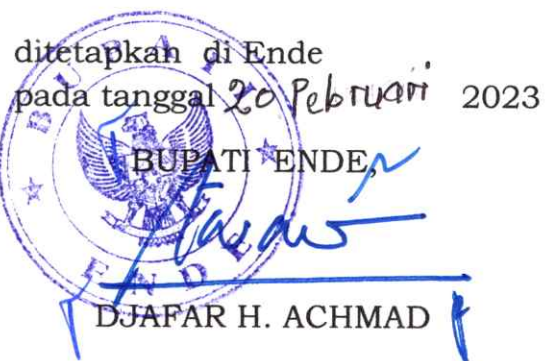 ditetapkan di Ende
pada tanggal 20 Pebruari 2023
BUPATI ENDE,
DJAFAR H. ACHMAD
BUPATI
ENDE